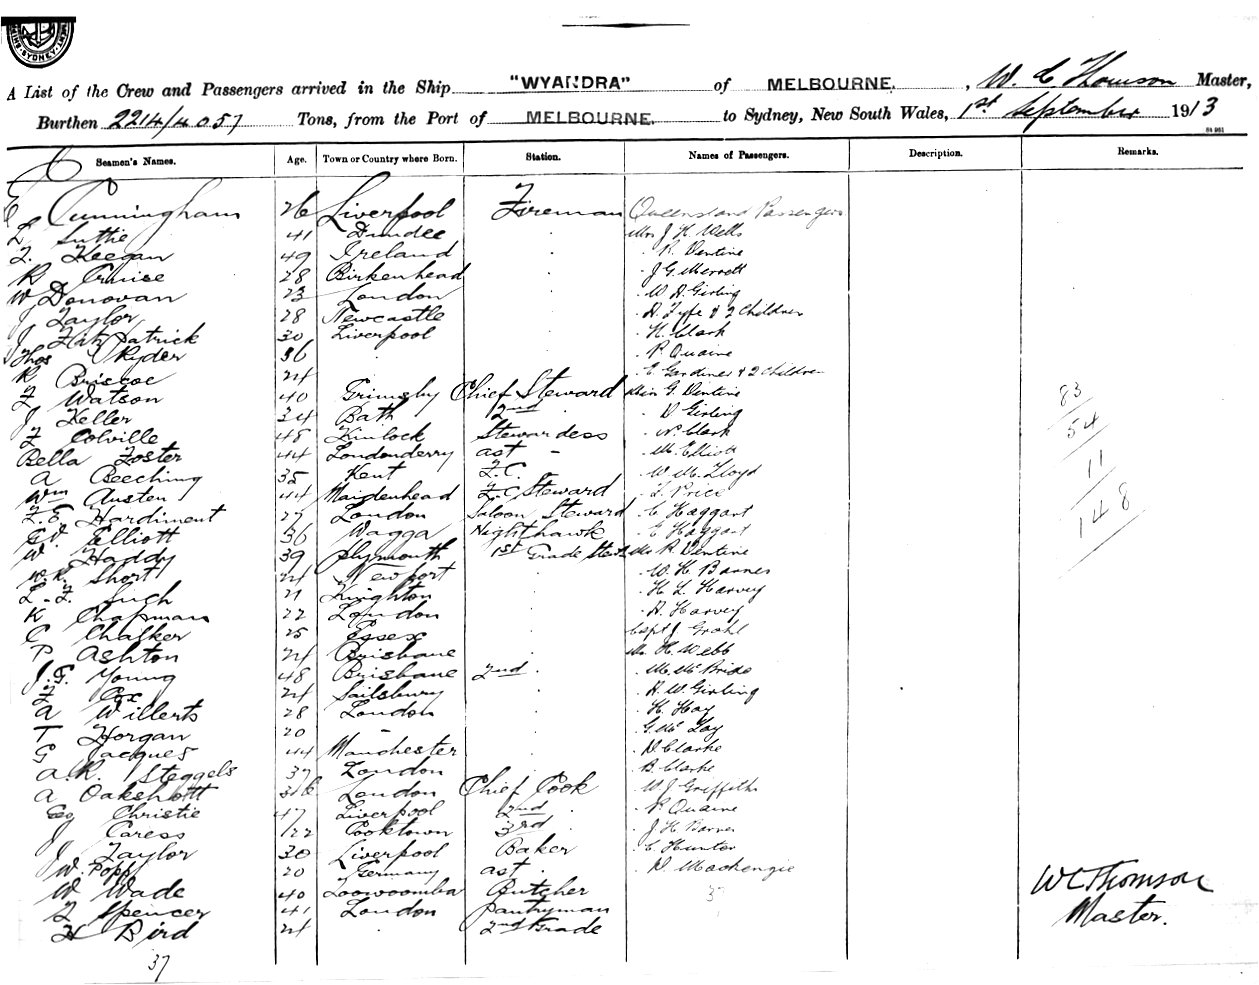 SHIPPING SYDNEY
A List of the Crew and Passengers arrived in the Ship "WYANDRA" of MELBOURNE, W. C Thomson Master,
Burthen 2214/4057 Tons, from the Port of MELBOURNE. to Sydney, New South Wales, 1st September 1913
Seamen's Names. Age. Town or Country where Born. Station. Names of Passengers. Description. Remarks.
C Cunningham 26 Liverpool Fireman Queensland Passengers
L Suttie 41 Dundee Mrs J H Wells
F. Keegan 49 Ireland R. Ventine
R Cruise 28 Birkenhead J G Merrett
W Donovan 23 London W A Girling
J Taylor 28 Newcastle A. Fyfe & 2 Children
J Fitzpatrick 30 Liverpool H. Clark
Thos Ryder 36 P. Quaine
R Briscoe 24 E Gardiner & 2 Children
F Watson 40 Grimsby Chief Steward Miss G. Ventine
J Keller 34 Bath 2nd D Girling
F Colville 48 Kinlock Stewardess N. Clark
Bella Foster 44 Londonderry ast - M. Elliott
A Beeching 35 Kent F. C. W. M. Lloyd
Wm Austen 44 Maidenhead F. C Steward L. Price
F. E. Hardiment 27 London Saloon Steward C Haggart
Elliott 36 Wagga Nighthawk E Haggart
W. Haddy 39 Plymouth 1st Grade Stewd Mr R. Ventine
W. R. Short 24 Newport W. H Barnes
L. F. Such 21 Knighton H L Harvey
K Chapman 22 London A. Harvey
C Chalker 25 Essex Capt J Grahl
P Ashton 24 Brisbane Mr H. Webb
J. G. Young 48 Brisbane 2nd M. McBride
F Cox 24 Sailsbury A. W Girling
A Willerts 28 London H. Hay
T Horgan 20 - G. Mc Lay
G Jacques 44 Manchester D Clarke
A. R. Steggels 37 London B. Clarke
A Oakshott 36 London Chief Cook W J Griffiths
Christie 47 Liverpool 2nd P. Quaine
J Caress 22 Cooktown 3rd J H Barnes
J Taylor 30 Liverpool Baker C Hunter
W. Popp 20 Germany ast. D. Mackenzie
W Wade 40 Toowoomba Butcher
F Spencer 41 London Pantryman
H Bird 24 2nd Grade
37
37
83
54
11
148
W C Thomson
Master.